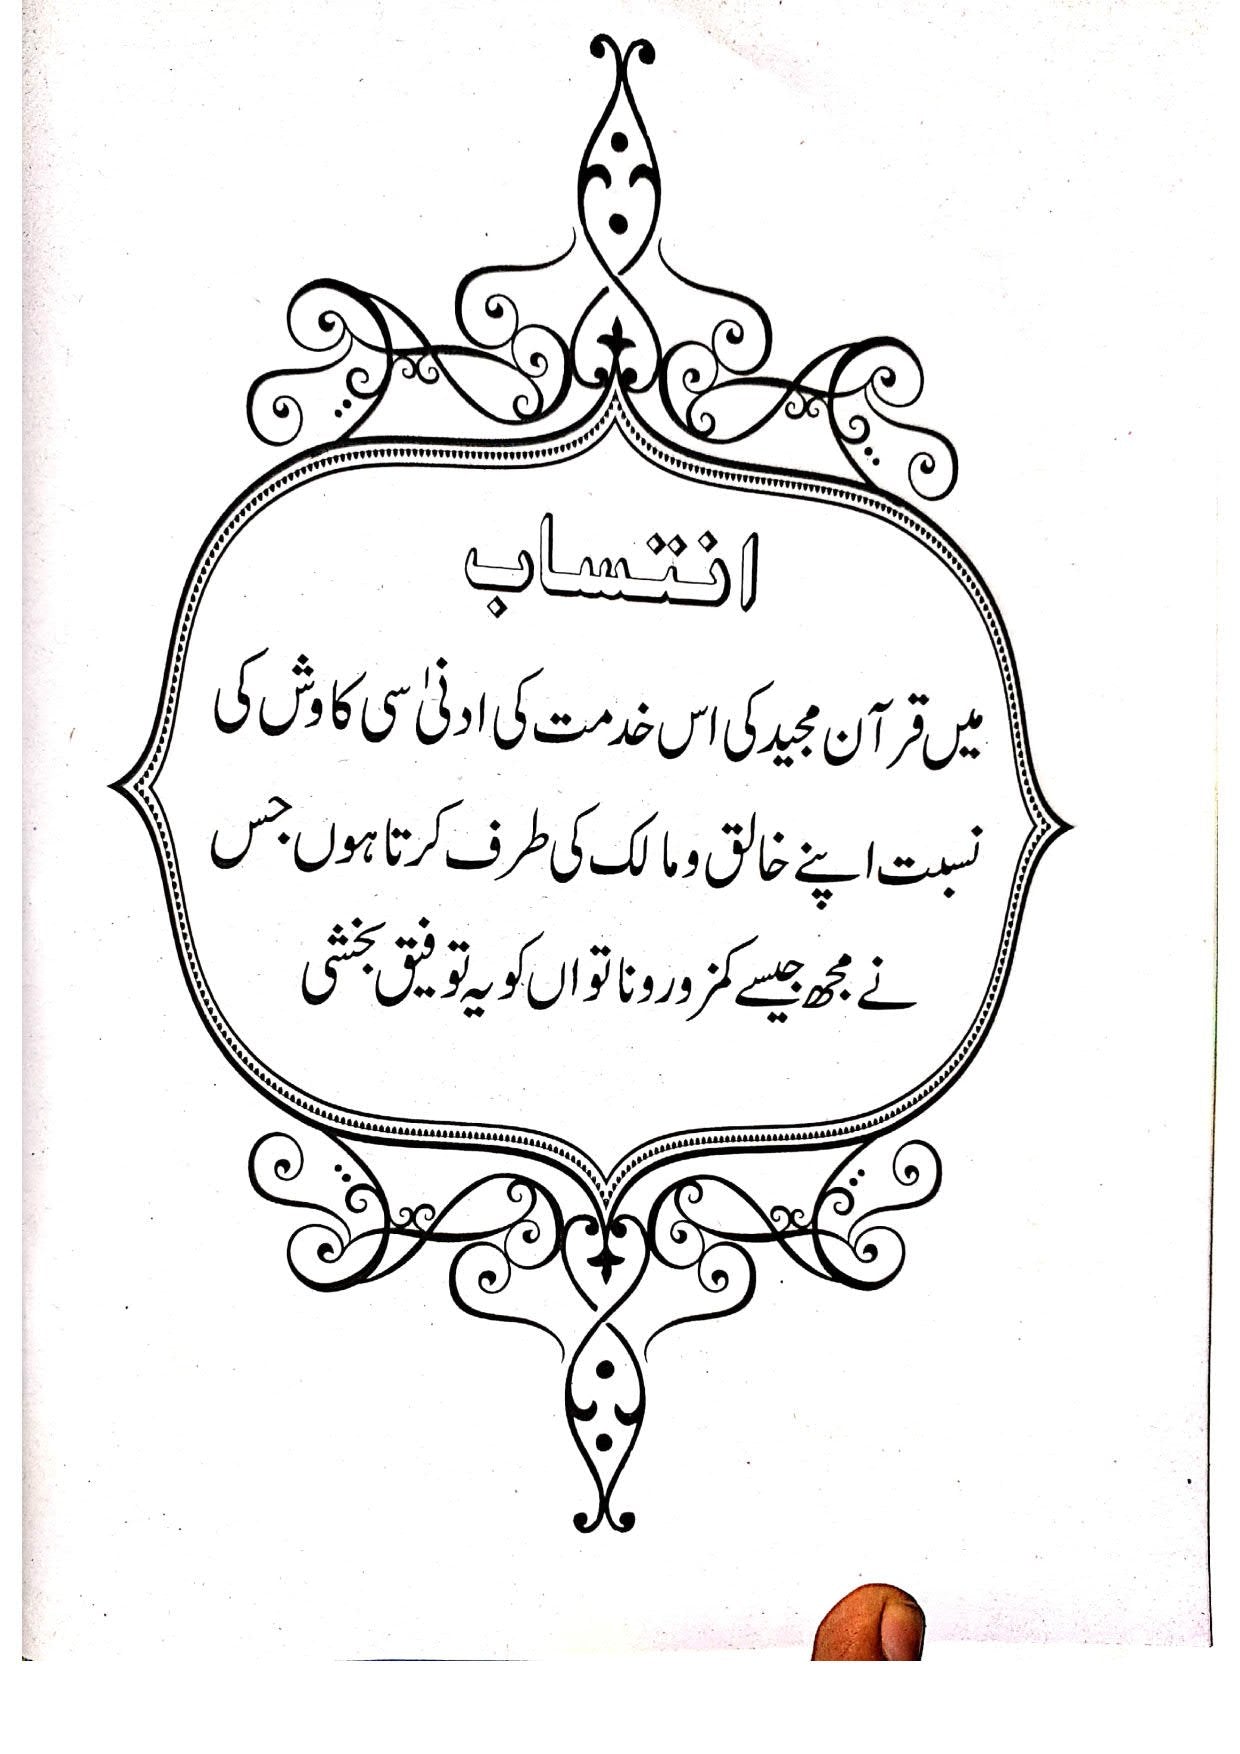 انتساب
میں قرآن مجید کی اس خدمت کی ادنیٰ سی کاوش کی
نسبت اپنے خالق و مالک کی طرف کرتا ہوں جس
نے مجھ جیسے کمزور و ناتواں کو یہ توفیق بخشی